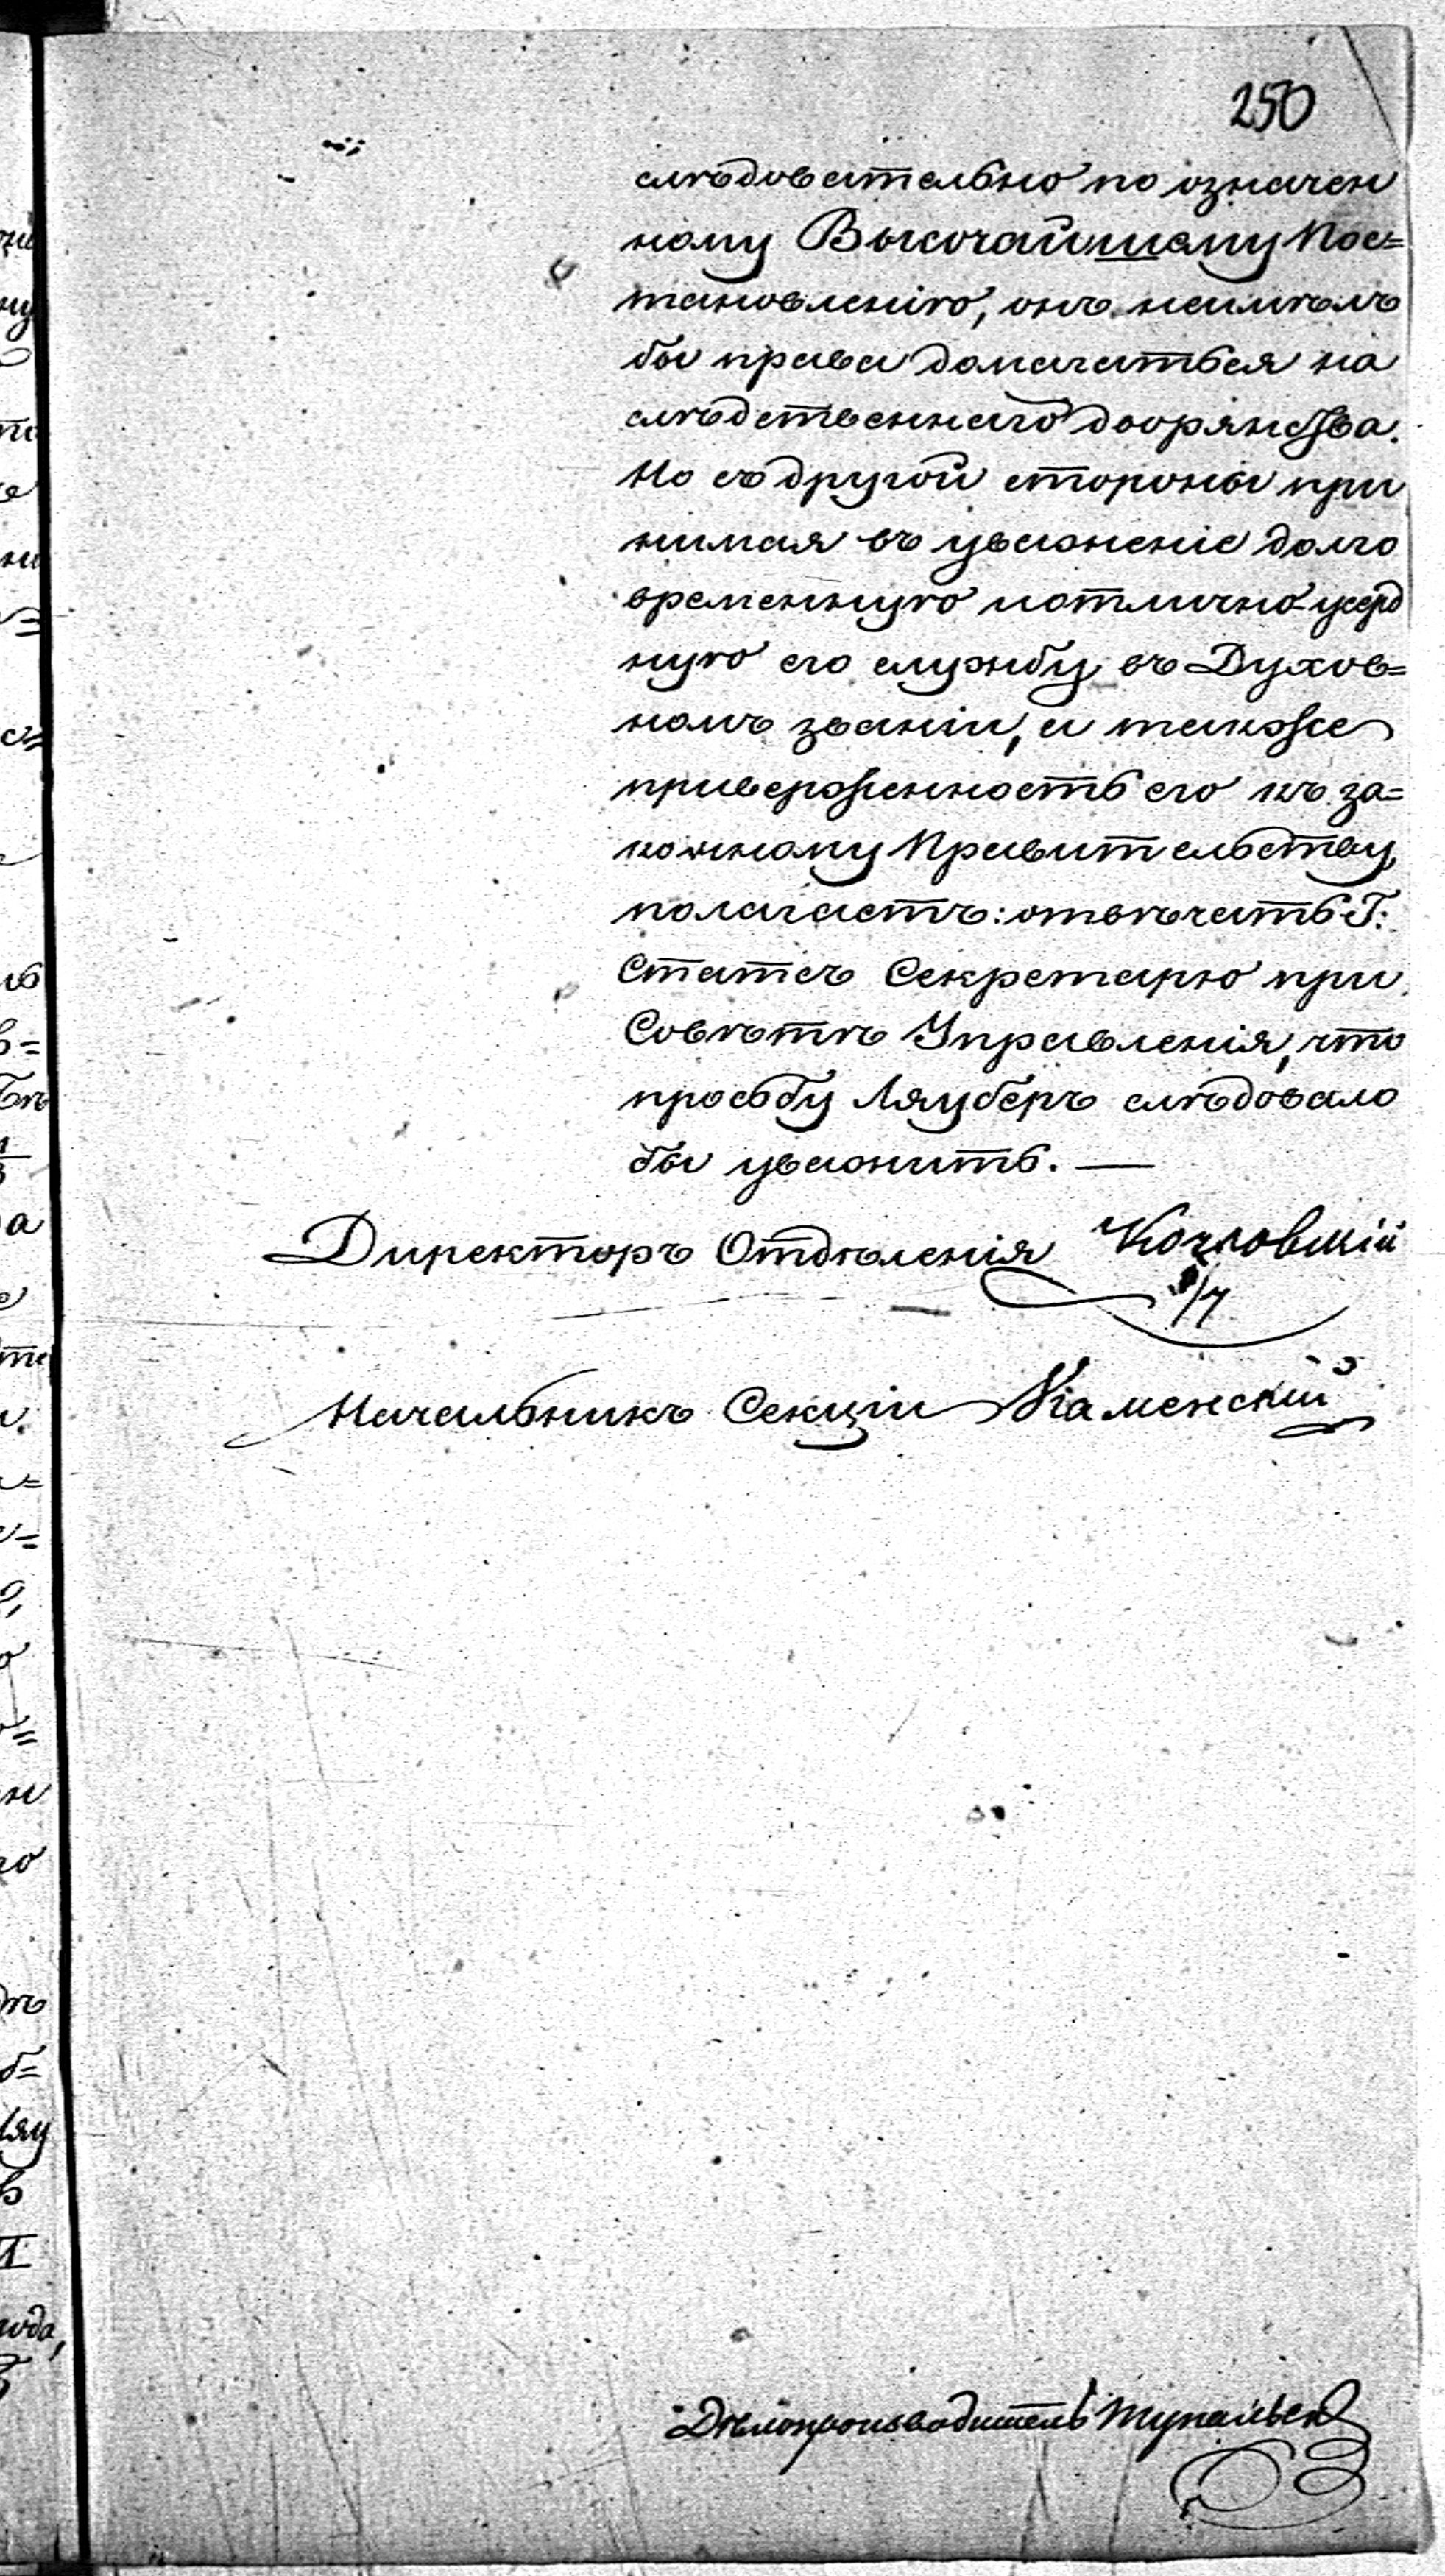 250
слѣдовательно по означен
ному Высочайшему Пос=
тановленію, онъ неимѣлъ
бы права домагаться на
слѣдственнаго дворянства.
Но съ другой стороны при
нимая въ уваженіе долго
временную и отлично-усерд
ную его службу въ Духов=
номъ званіи, а также
приверженность его къ за=
конному Правительству,
полагаетъ: отвѣчать Г:
Статсъ Секретарю при
Совѣтѣ Управленія, что
просьбу Ляуберъ слѣдовало
бы уважить. —
Директоръ Отдѣленія
Начальникъ Секціи Каменскій
Дѣлопроизводитель